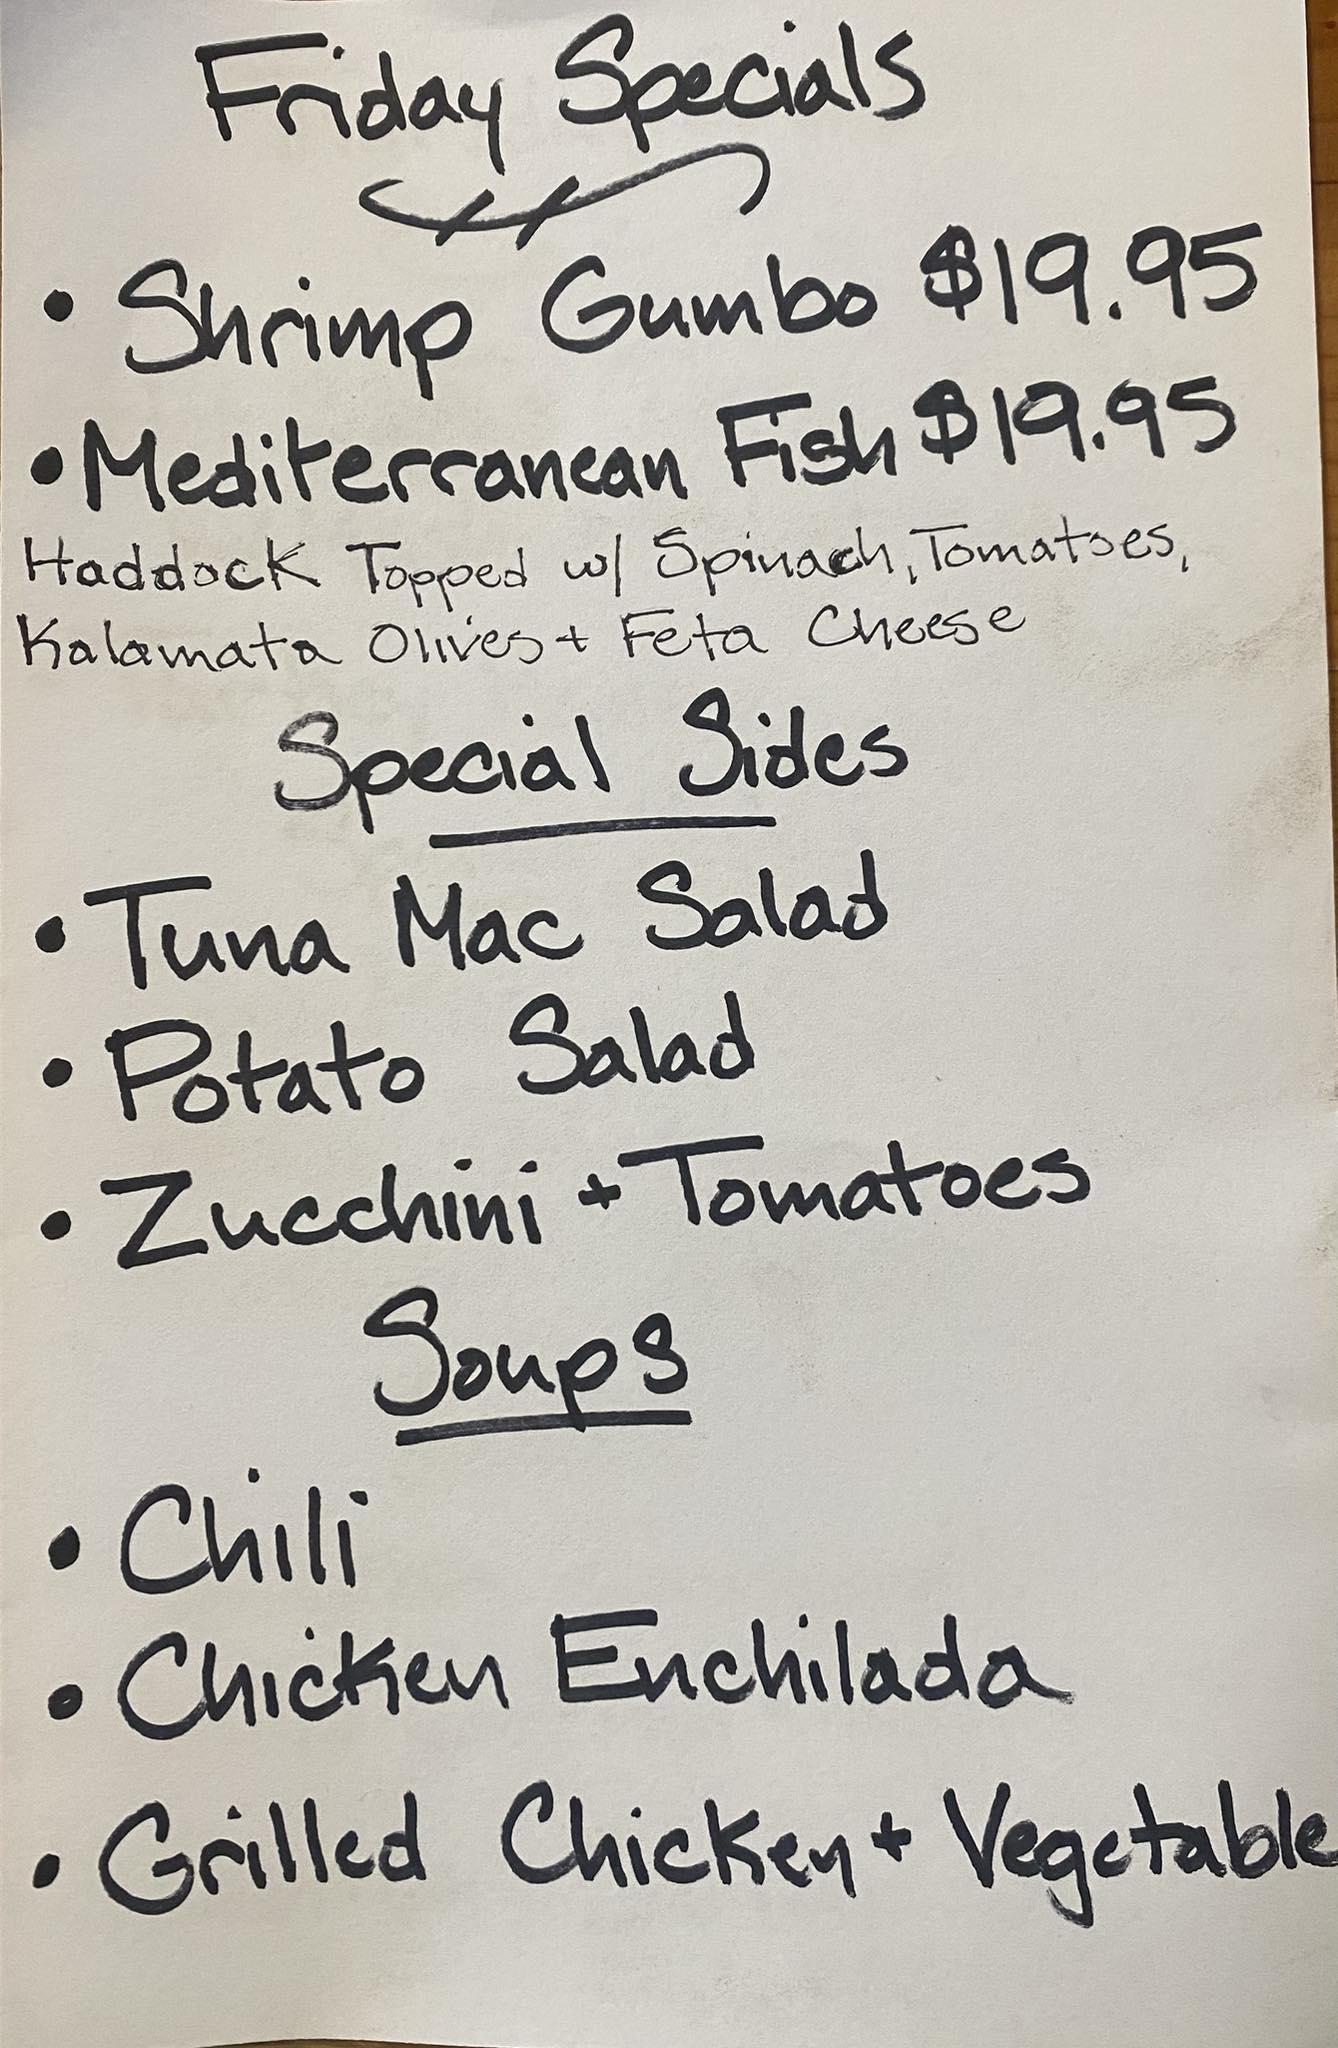 Friday Specials
• Shrimp Gumbo $19.95
• Mediterranean Fish $19.95
Haddock Topped w/ Spinach, Tomatoes,
Kalamata Olives + Feta Cheese
Special Sides
• Tuna Mac Salad
• Potato Salad
• Zucchini + Tomatoes
Soups
• Chili
• Chicken Enchilada
• Grilled Chicken + Vegetable